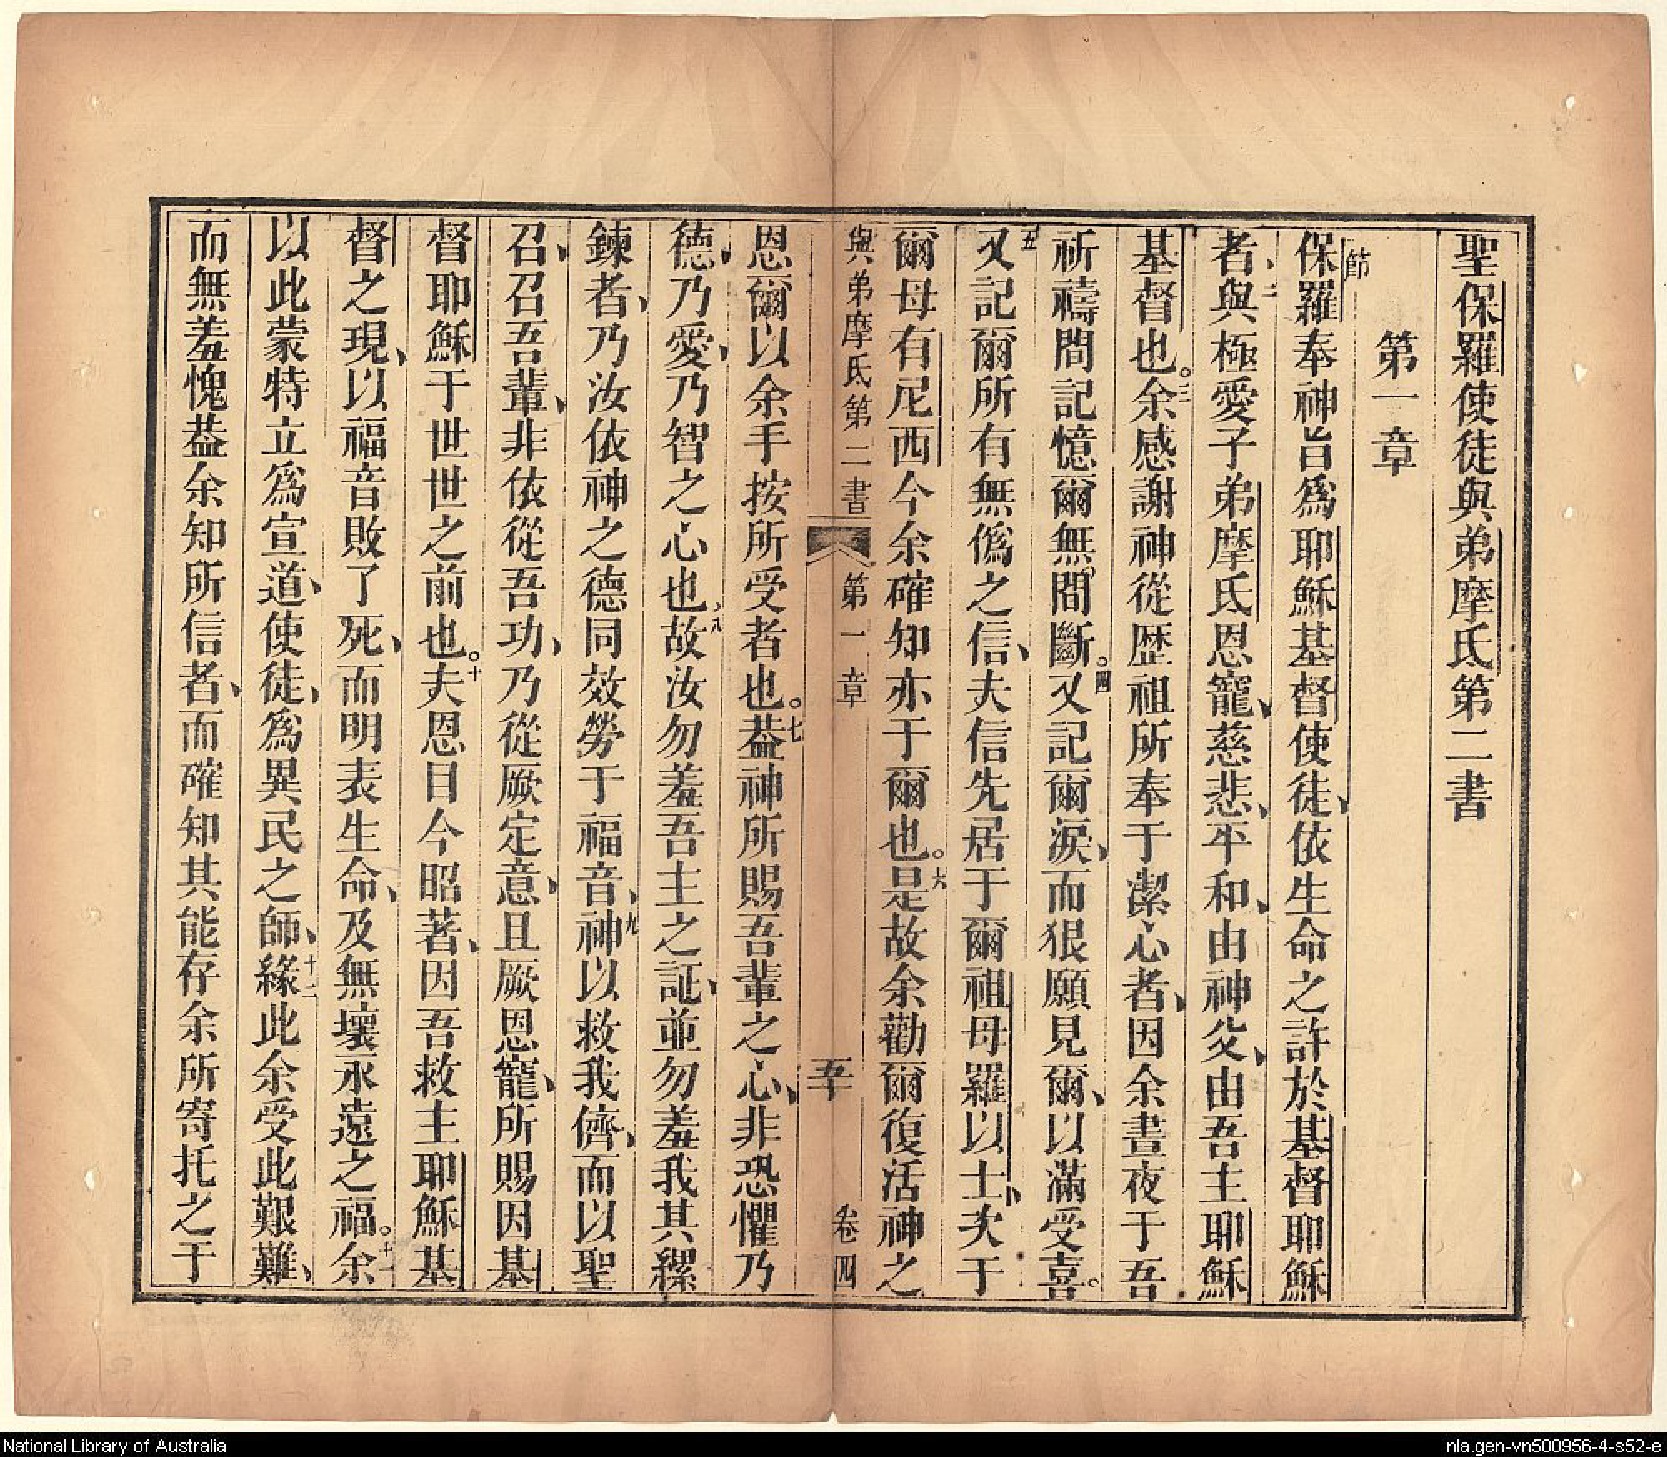 聖保羅使徒與弟摩氐第二書
第一章
節保羅奉神旨爲耶穌基督使徒、依生命之許於基督耶穌
者、二與極愛子弟摩氐恩寵、慈悲、平和、由神父、由吾主耶穌
基督也。三余感謝神從歴祖所奉于潔心者、因余晝夜于吾
祈禱間記憶爾無間斷。四又記爾淚、而狠願見爾、以滿受喜。
五又記爾所有無僞之信、夫信先居于爾祖母羅以士、次于
爾母有尼西今余確知亦于爾也。六是故余勸爾復活神之
與弟摩氐第二書
第一章
五十
卷四
恩爾以余手按所受者也。七葢神所賜吾輩之心、非恐懼乃
德、乃愛、乃智之心也、八故汝勿羞吾主之証、並勿羞我其縲
鍊者、乃汝依神之德同效勞于福音、九神以救我儕、而以聖
召、召吾輩、非依從吾功、乃從厥定意、且厥恩寵、所賜因基
督耶穌于世世之前也。十夫恩目今昭著、因吾救主耶穌基
督之現、以福音敗了死、而明表生命、及無壞永遠之福。十一余
以此蒙特立爲宣道、使徒、爲異民之師、十二緣此余受此艱難、
而無羞愧葢余知所信者、而確知其能存余所寄托之于
National Library of Australia
nla.gen-vn500956-4-s52-e